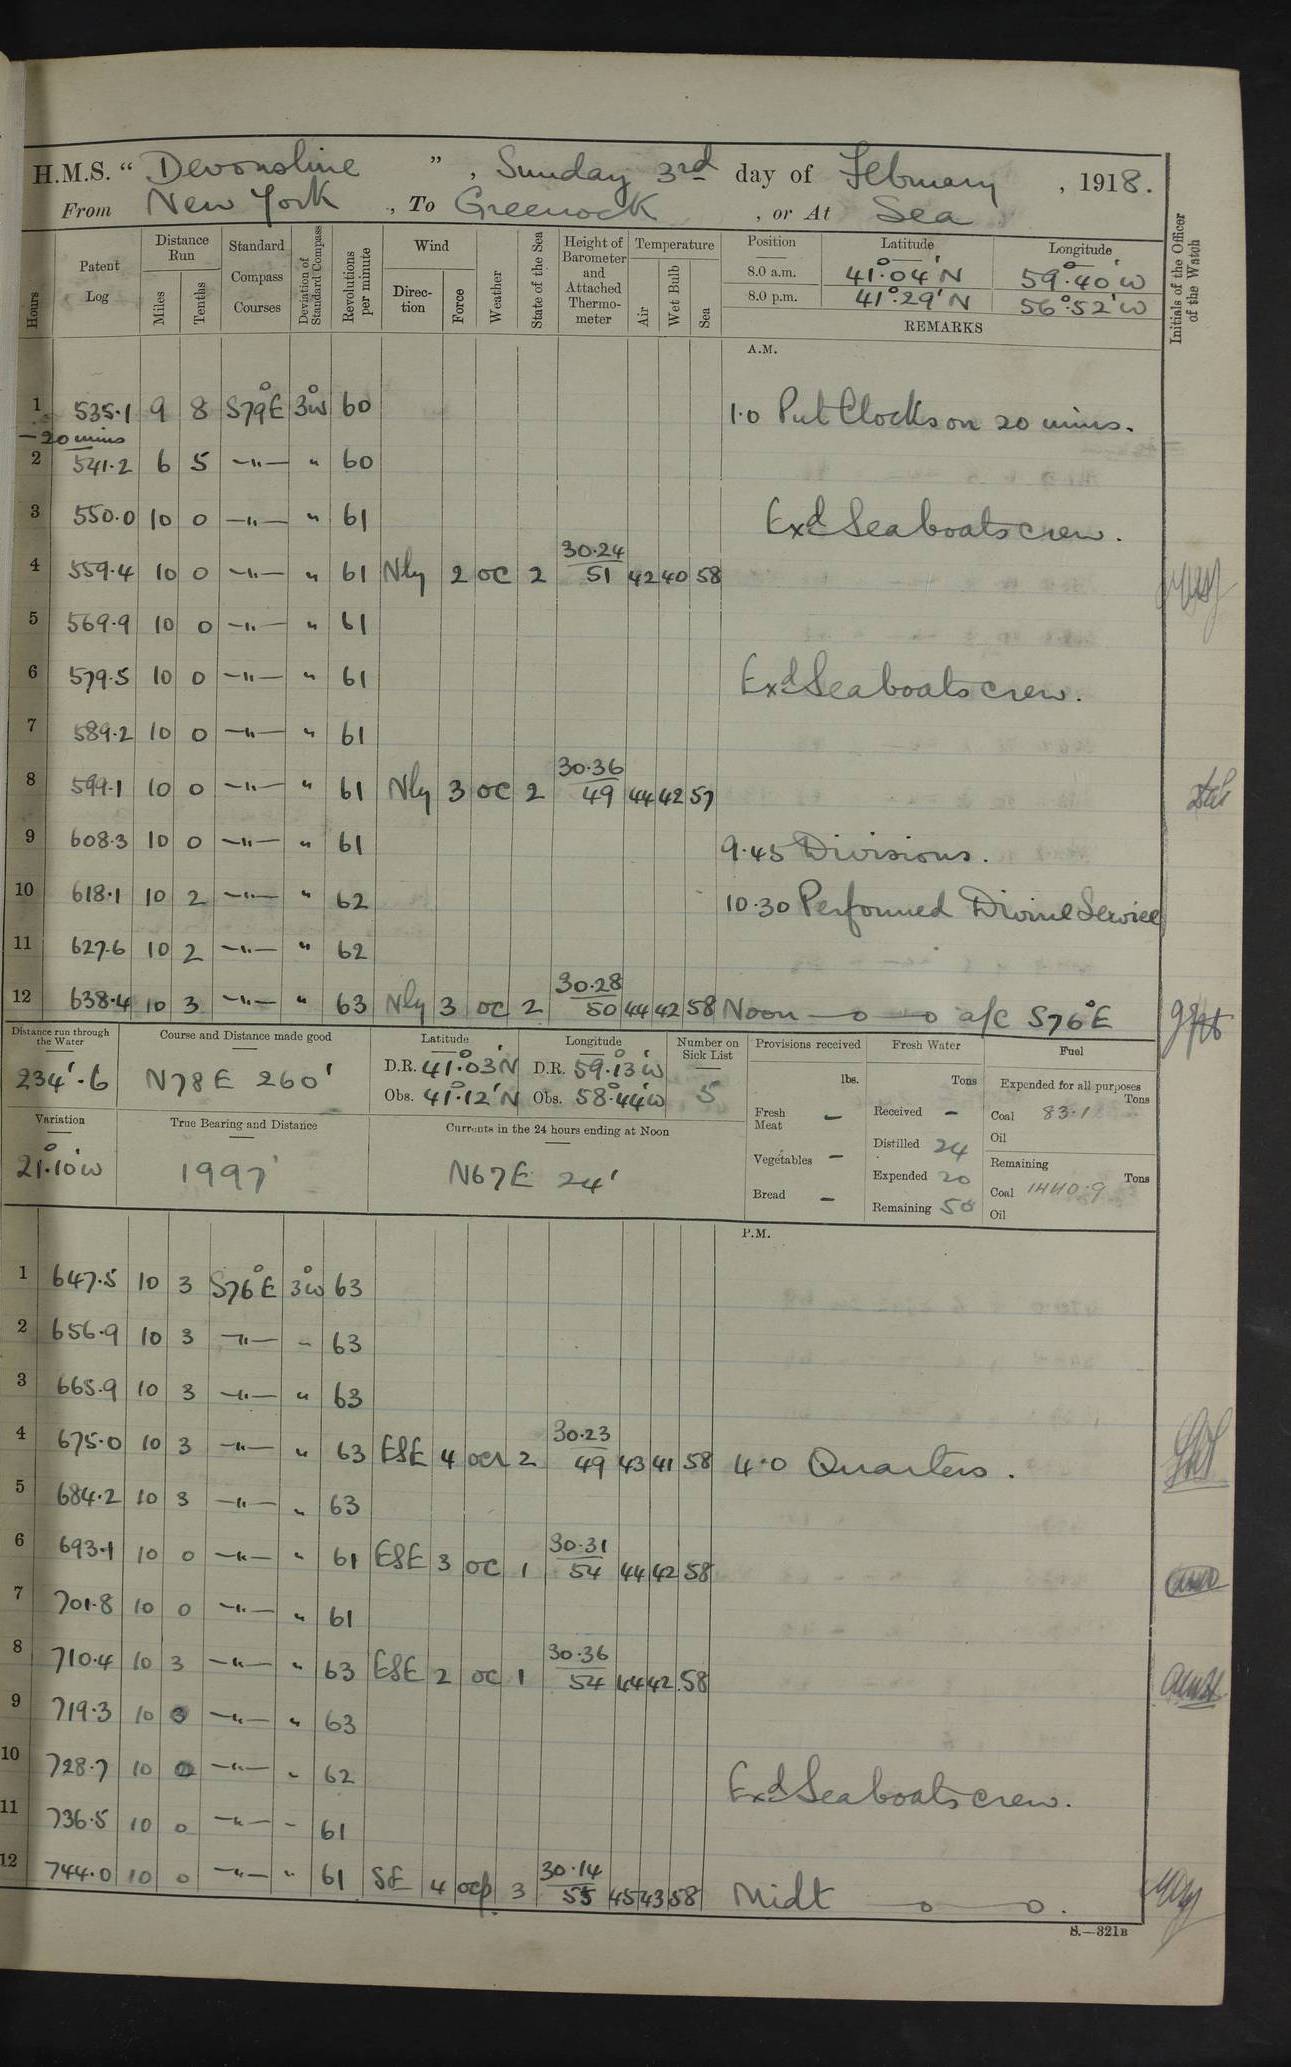 H.M.S. “ Devonshire ” , Sunday 3rd day of February , 1918.
From New York , To Greenock , or At Sea
Hours
Patent Log
Distance Run
Miles
Tenths
Standard Compass Courses
Deviation of Standard Compass
Revolutions per minute
Wind
Direc-tion
Force
Weather
State of the Sea
Height of Barometer and Attached Thermo-meter
Temperature
Air
Wet Bulb
Sea
Position Latitude Longitude
8.0 a.m. 41°.04'N 59°.40'W
8.0 p.m. 41°.29'N 56°.52'W
REMARKS
Initials of the Officer of the Watch
A.M.
1 535.1 9 8 S79°E 3°W 60 1.0 Put Clocks on 20 mins.
-20 mins
2 541.2 6 5 —"— " 60
3 550.0 10 0 —"— " 61 Exd Seaboats crew.
4 559.4 10 0 —"— " 61 Nly 2 oc 2 30.24 51 42 40 58
5 569.9 10 0 —"— " 61
6 579.5 10 0 —"— " 61 Exd Seaboats crew.
7 589.2 10 0 —"— " 61
8 599.1 10 0 —"— " 61 Nly 3 oc 2 30.36 49 44 42 57
9 608.3 10 0 —"— " 61 9.45 Divisions.
10 618.1 10 2 —"— " 62 10.30 Performed Divine Service
11 627.6 10 2 —"— " 62
12 638.4 10 3 —"— " 63 Nly 3 oc 2 30.28 50 44 42 58 Noon —o—o a/c S76°E
Distance run through the Water
234'.6
Course and Distance made good
N78E 260'
Latitude Longitude
D.R. 41°.03'N D.R. 59°.13'W
Obs. 41°.12'N Obs. 58°.44'W
Number on Sick List
5
Variation
21°.10'W
True Bearing and Distance
1997'
Currents in the 24 hours ending at Noon
N67E 24'
Provisions received
lbs.
Fresh Meat —
Vegetables —
Bread —
Fresh Water
Tons
Received —
Distilled 24
Expended 20
Remaining 50
Fuel
Expended for all purposes
Tons
Coal 83.1
Oil
Remaining
Tons
Coal 1440.9
Oil
P.M.
1 647.5 10 3 S76°E 3°W 63
2 656.9 10 3 —"— " 63
3 665.9 10 3 —"— " 63
4 675.0 10 3 —"— " 63 ESE 4 ocr 2 30.23 49 43 41 58 4.0 Quarters.
5 684.2 10 3 —"— " 63
6 693.1 10 0 —"— " 61 ESE 3 oc 1 30.31 54 44 42 58
7 701.8 10 0 —"— " 61
8 710.4 10 3 —"— " 63 ESE 2 oc 1 30.36 54 44 42 58
9 719.3 10 3 —"— " 63
10 728.7 10 —"— " 62 Exd Seaboats crew.
11 736.5 10 0 —"— " 61
12 744.0 10 0 —"— " 61 SE 4 ocp 3 30.14 55 45 43 58 Midt —o—o.
S.—321B